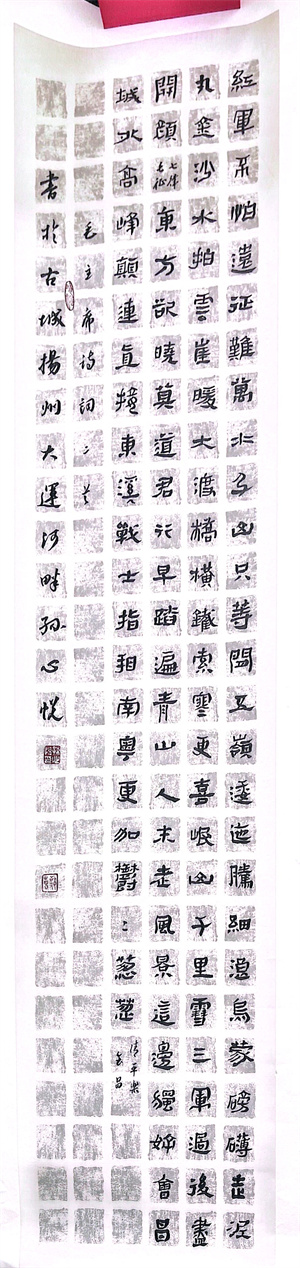 紅軍不怕遠征難萬水千山只等閑五嶺逶迤騰細浪烏蒙磅礴走泥
丸金沙水拍雲崖暖大渡橋橫鐵索寒更喜岷山千里雪三軍過後盡
開顏七律長征東方欲曉莫道君行早踏遍青山人未老風景這邊獨好會昌
城外高峰顛連直接東溟戰士指看南粵更加鬱々蔥蔥清平樂會昌
毛主席詩詞二首
書於古城揚州大運河畔孫心悅